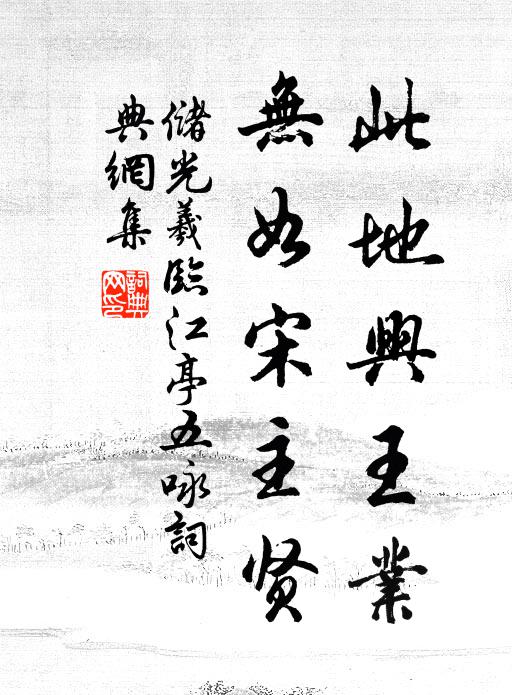 此地興王業
無如宋主贤
儲光羲臨江亭五咏詞
典網集
詞典網印